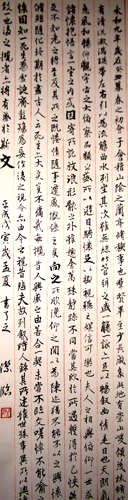 永和九年歲在癸丑暮春之初會于會稽山陰之蘭亭脩稧事也群賢畢至少長咸集此地有崇山峻領茂林脩竹又有
清流激湍暎帶左右引以為流觴曲水列坐其次雖無絲竹管弦之盛一觴一詠亦足以暢敘幽情是日也天朗氣清惠
風和暢仰觀宇宙之大俯察品類之盛所以遊目騁懷足以極視聽之娛信可樂也夫人之相與俯仰一世或取
諸懷抱悟言一室之內或因寄所託放浪形骸之外雖趣舍萬殊靜躁不同當其欣於所遇暫得於己快然
自足不知老之將至及其所之既惓情隨事遷感慨係之矣向之所欣俛仰之間以為陳迹猶不能不以之興
懷況脩短隨化終期於盡古人云死生亦大矣豈不痛哉每攬昔人興感之由若合一契未嘗不臨文嗟悼不能喻之於
懷固知一死生為虛誕齊彭殤為妄作後之視今亦由今之視昔悲夫故列敘時人錄其所述雖世殊事異所以興懷其
致一也後之攬者亦將有感於斯文
孟夏書